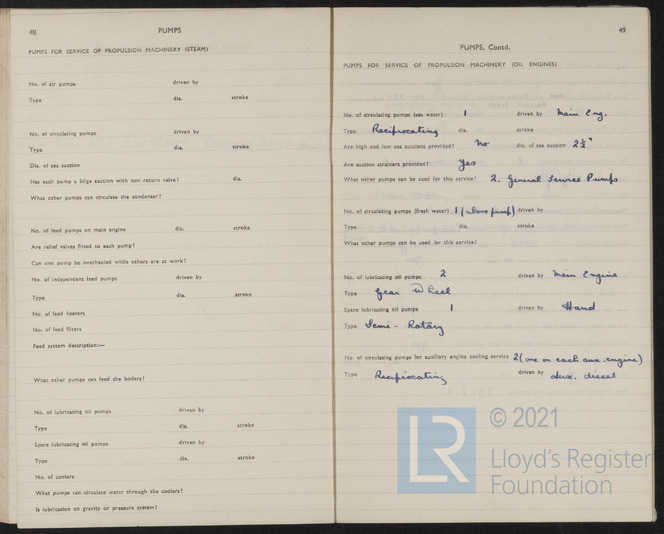 48
PUMPS
PUMPS FOR SERVICE OF PROPULSION MACHINERY (STEAM)
No. of air pumps driven by
Type dia. stroke
No. of circulating pumps driven by
Type dia. stroke
Dia. of sea suction
Has each pump a bilge suction with non return valve? dia.
What other pumps can circulate the condenser?
No. of feed pumps on main engine dia. stroke
Are relief valves fitted to each pump?
Can one pump be overhauled while others are at work?
No. of independent feed pumps driven by
Type dia. stroke
No. of feed heaters
No. of feed filters
Feed system description:—
What other pumps can feed the boilers?
No. of lubricating oil pumps driven by
Type dia. stroke
Spare lubricating oil pumps driven by
Type dia. stroke
No. of coolers
What pumps can circulate water through the coolers?
Is lubrication on gravity or pressure system?
49
PUMPS, Contd.
PUMPS FOR SERVICE OF PROPULSION MACHINERY (OIL ENGINES)
No. of circulating pumps (sea water) 1 driven by Main Eng.
Type Reciprocating dia. stroke
Are high and low sea suctions provided? No dia. of sea suction 2½"
Are suction strainers provided? Yes
What other pumps can be used for this service? 2. General Service Pumps
No. of circulating pumps (fresh water) 1 (above pump) driven by
Type dia. stroke
What other pumps can be used for this service?
No. of lubricating oil pumps 2 driven by Main Engine
Type Gear Wheel
Spare lubricating oil pumps 1 driven by Hand
Type Semi-Rotary
No. of circulating pumps for auxiliary engine cooling service 2 (one on each aux. engine)
Type Reciprocating driven by Aux. diesel
LR
© 2021
Lloyd's Register
Foundation